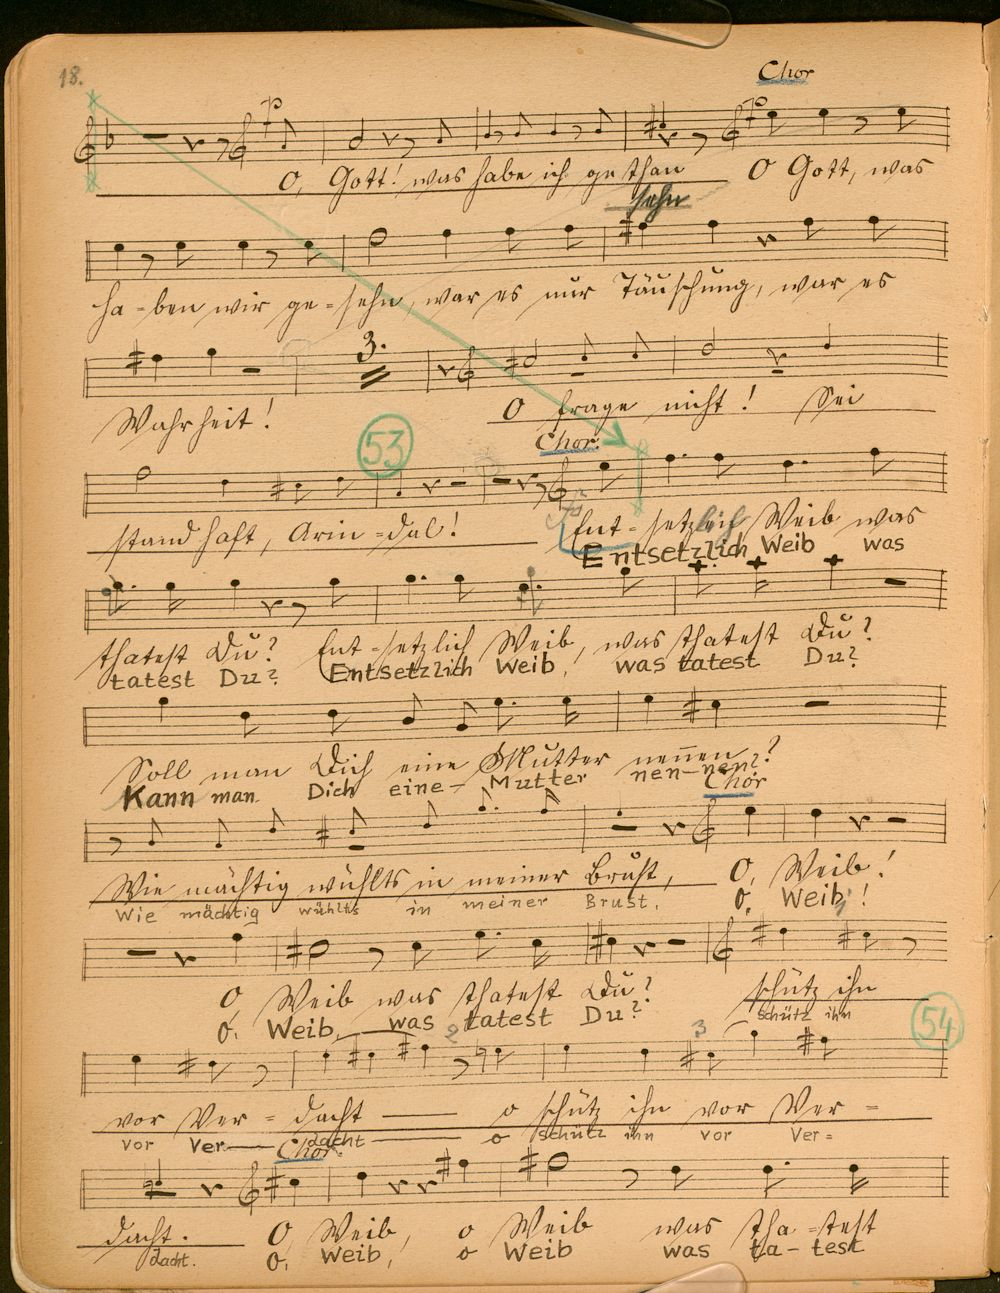 18.
Chor
O, Gott! was habe ich gethan O Gott, was
sehn
ha-ben wir ge-sehn, war es nur Täuschung, war es
3.
Wahrheit! O frage nicht! Sei
53
Chor.
standhaft, Arin-dal! Ent-setzlich Weib was
Entsetzlich Weib was
thatest Du? Ent-setzlich Weib, was thatest Du?
tatest Du? Entsetzlich Weib, was tatest Du?
Soll man Dich eine Mutter nennen?
Kann man Dich eine- Mutter nen-nen?
Chor
Wie mächtig wühlts in meiner Brust, O, Weib!
Wie mächtig wühlts in meiner Brust, O, Weib!
O Weib was thatest Du? schütz ihn
O, Weib, was tatest Du? schütz ihn
54
2 3
vor Ver-dacht o schütz ihn vor Ver-
vor Ver- dacht o schütz ihn vor Ver=
Chor.
dacht. O Weib, o Weib was tha-test
dacht. O, Weib, o Weib was ta-test